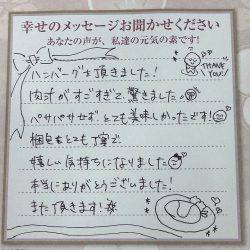 幸せのメッセージお聞かせください
あなたの声が、私達の元気の素です!
ハンバーグを頂きました!
肉汁がすごすぎて驚きました。
パサパサせず、とても美味しかったです!
梱包もとても丁寧で
嬉しい気持ちになりました
本当にありがとうございました!
また頂きます!
THANK YOU!